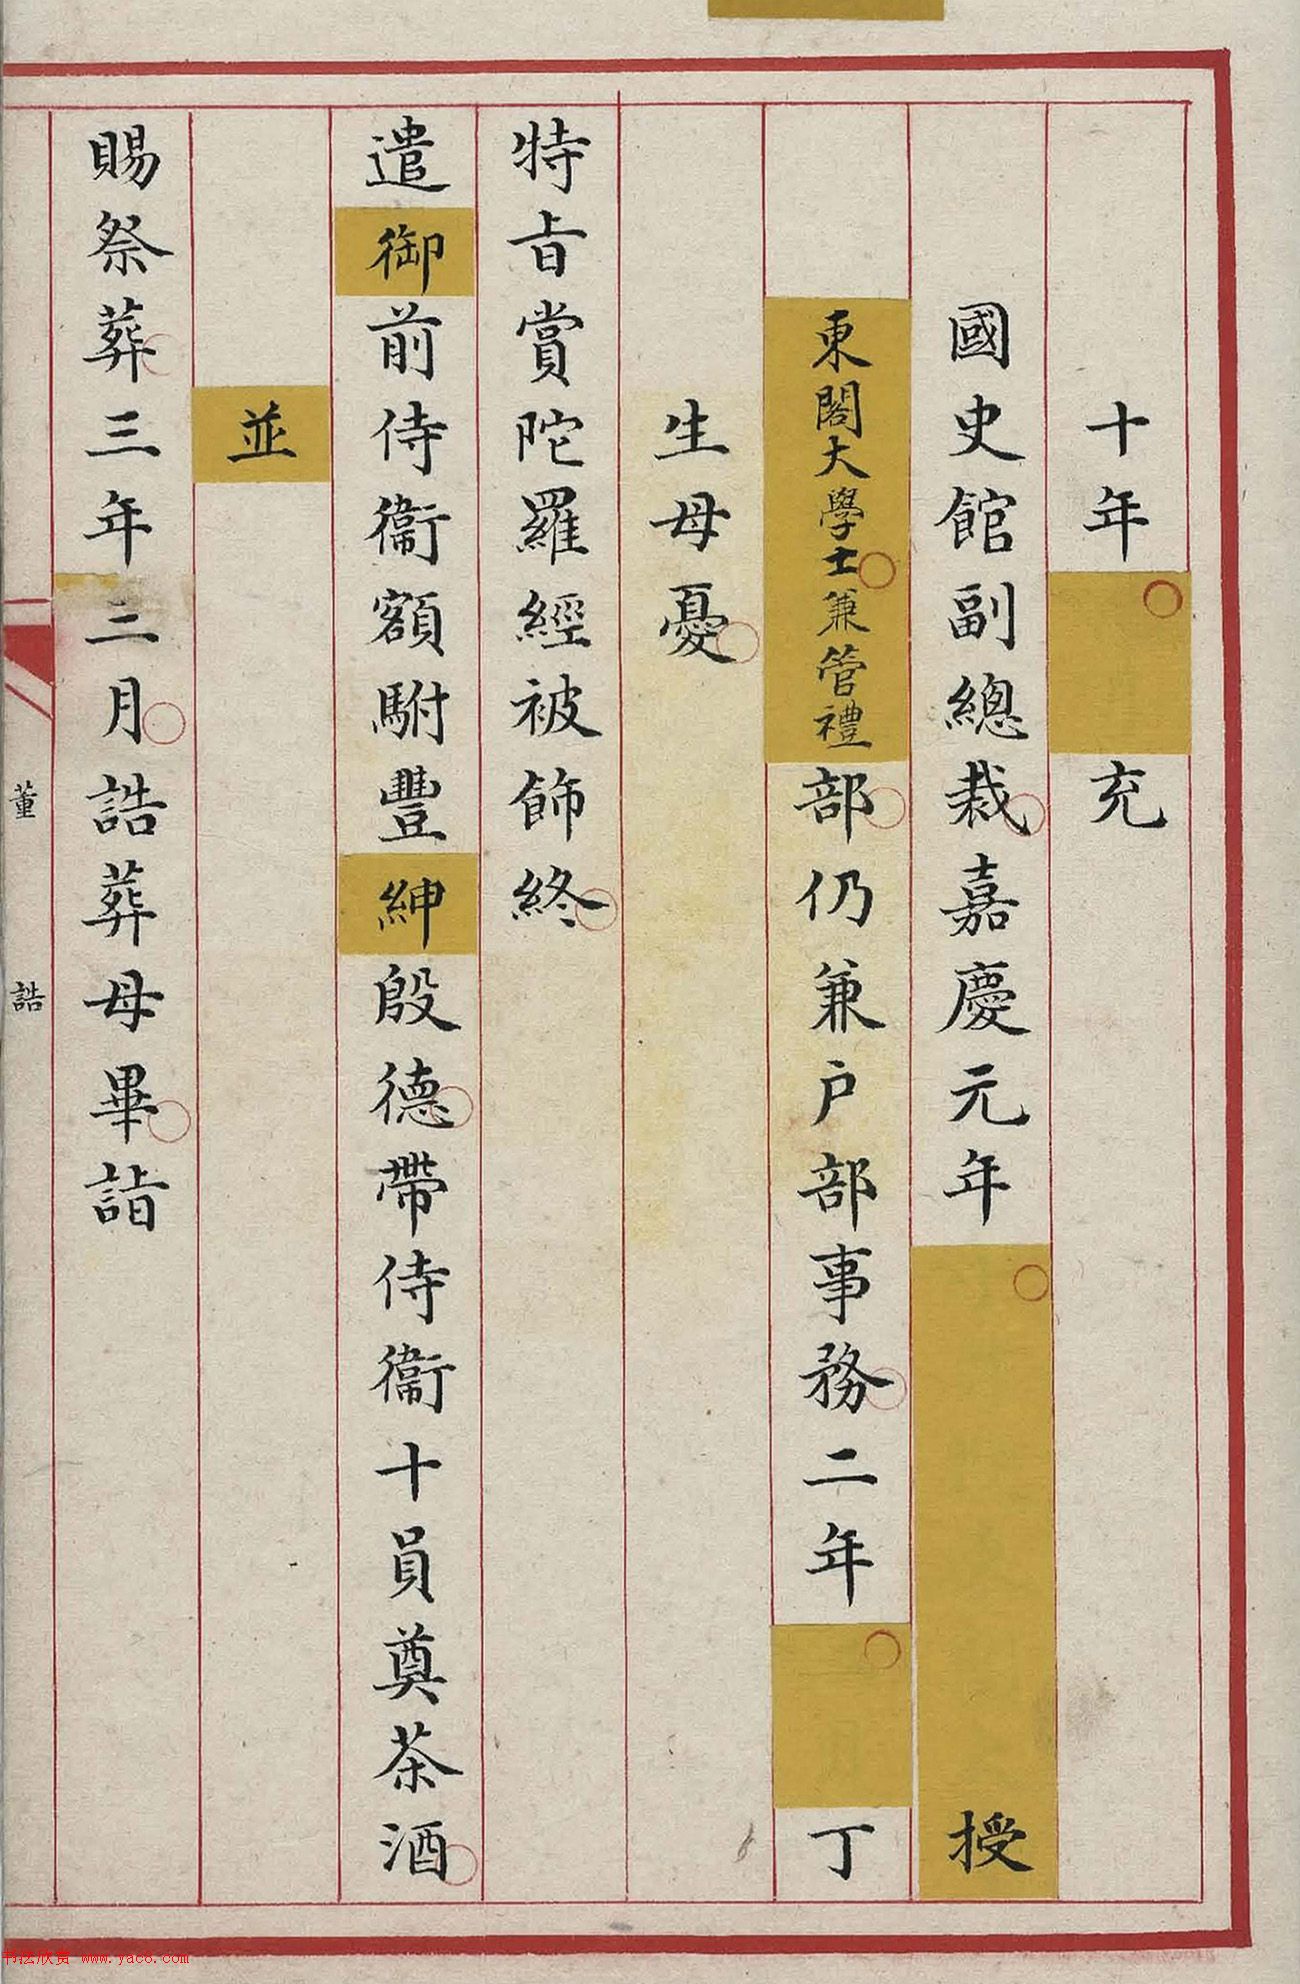 十年充
國史館副總裁嘉慶元年授
東閣大學士兼管禮部仍兼户部事務二年丁
生母憂
特旨賞陀羅經被飾終
遣御前侍衞額駙豐紳殷德帶侍衞十員奠茶酒
並
賜祭葬三年二月誥葬母畢詣
董誥
书法欣赏 www.yac8.com